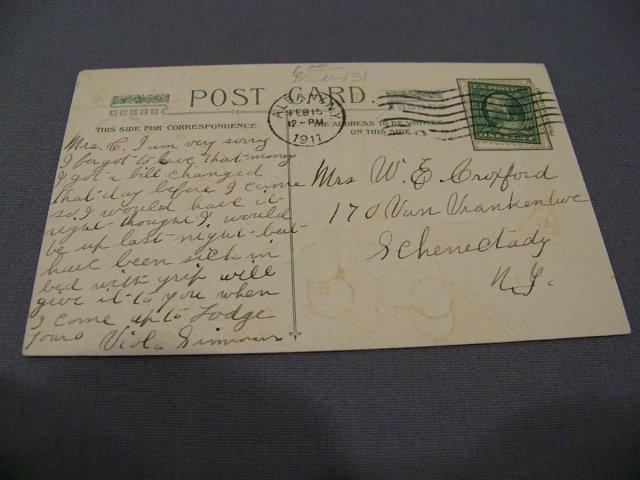 POST CARD.
THIS SIDE FOR CORRESPONDENCE.
THE ADDRESS TO BE WRITTEN
ON THIS SIDE
ALBANY, N.Y.
FEB 15
12-PM
1911
U.S. POSTAGE
Mrs. C. I am very sorry
I forgot to leave that money
I got a bill changed
that day before I came
so I would have it
right thought I would
be up last night but
have been sick in
bed with grip will
give it to you when
I come up to Lodge
Yours Viola Simmons
Mrs W. E. Croxford
170 Van Vranken Ave
Schenectady
N.Y.